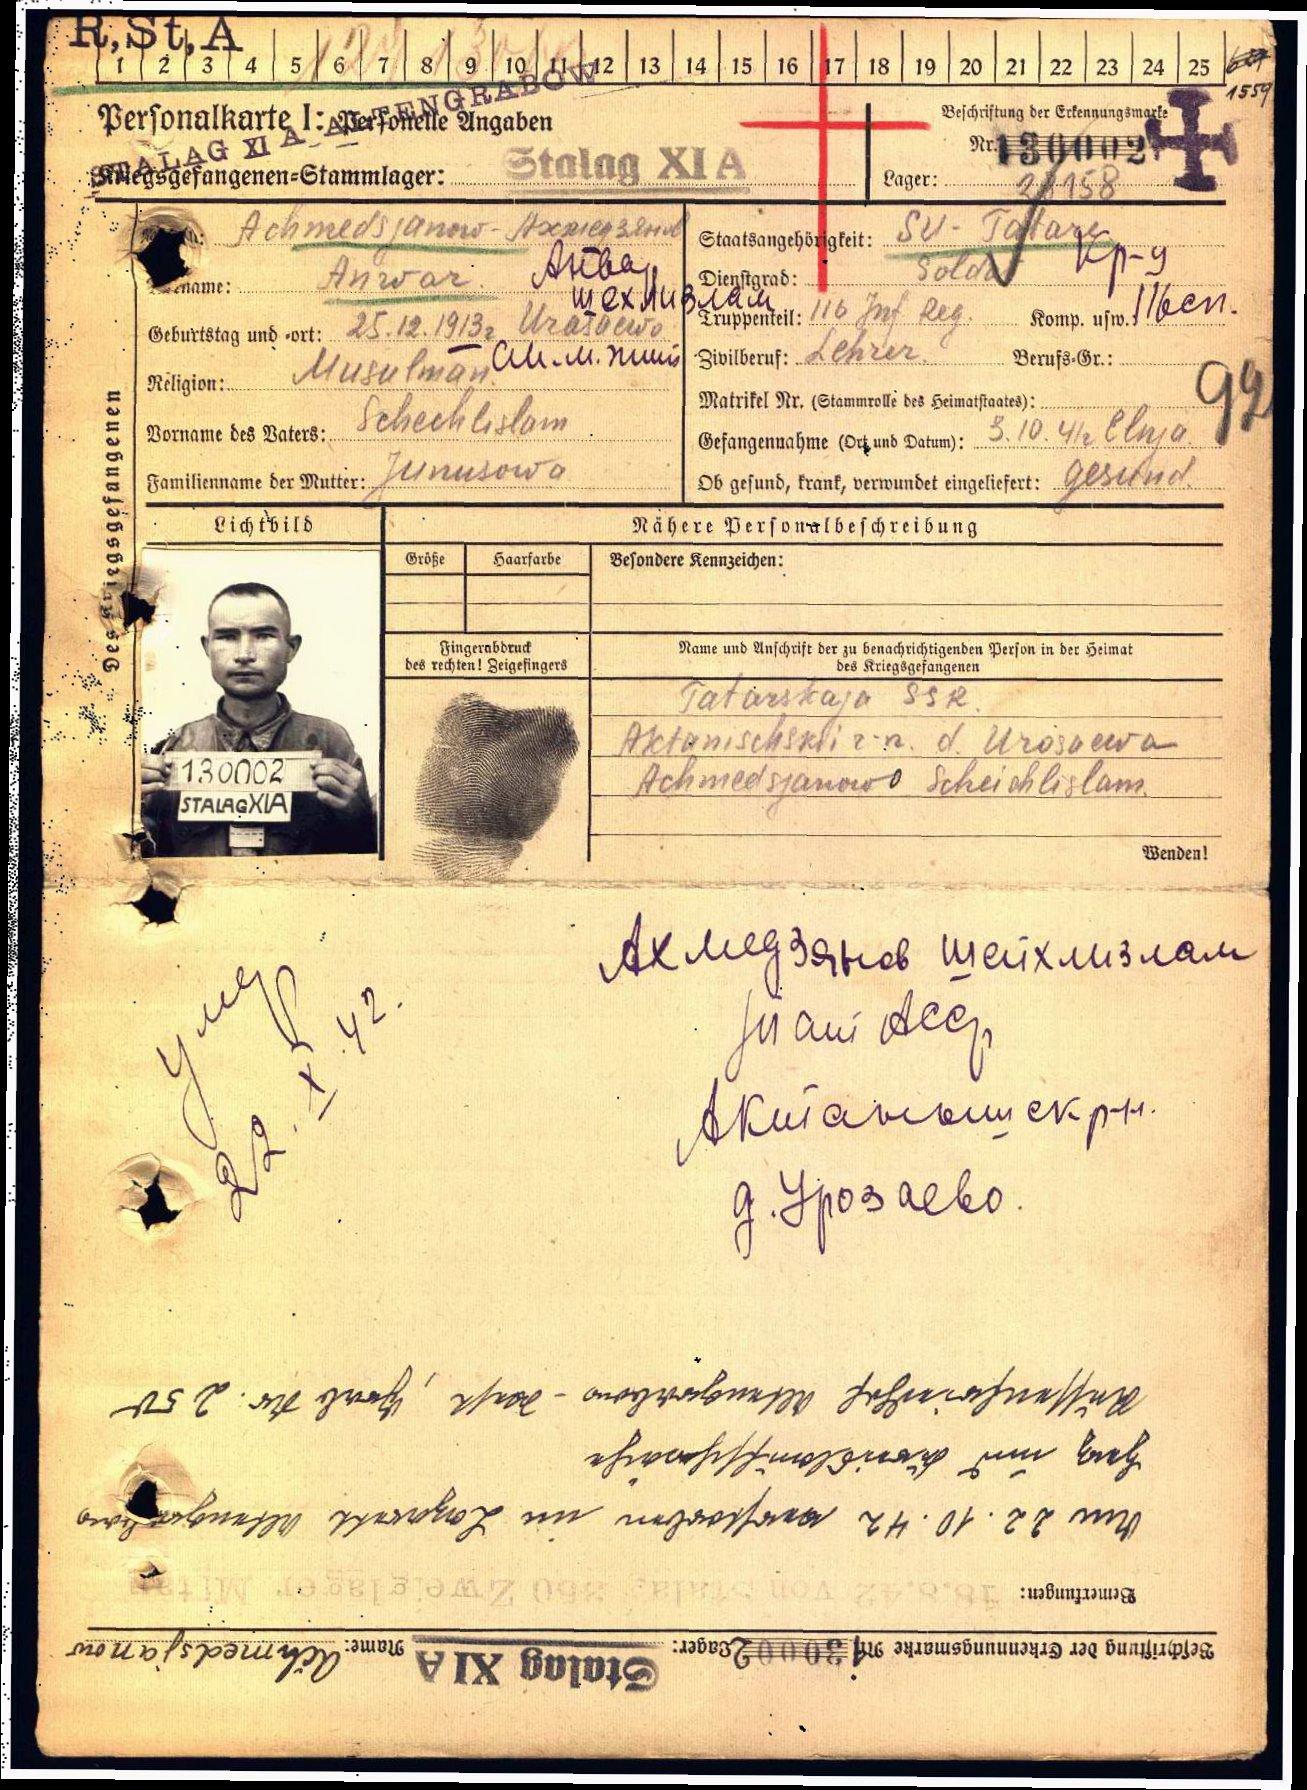 R,St,A
1 2 3 4 5 6 7 8 9 10 11 12 13 14 15 16 17 18 19 20 21 22 23 24 25
1559
Personalkarte I: Personelle Angaben
STALAG XI A ALTENGRABOW
Kriegsgefangenen-Stammlager: Stalag XI A
Beschriftung der Erkennungsmarke
Nr. 130002
Lager: 28158
Des Kriegsgefangenen
Achmedsjanow - Ахмедзянов
Vorname: Anwar. Анвар
шехлизлам
Geburtstag und -ort: 25.12.1913г Urasaewo
Religion: Musulman.
Vorname des Vaters: Schechlislam
Familienname der Mutter: Junusowa
Staatsangehörigkeit: SU - Tatare
Dienstgrad: Soldat Кр-ц
Truppenteil: 116 Inf Reg. Komp. usw.: 116сп.
Zivilberuf: Lehrer. Berufs-Gr.:
Matrikel Nr. (Stammrolle des Heimatstaates):
Gefangennahme (Ort und Datum): 3.10.41г Elnja.
Ob gesund, krank, verwundet eingeliefert: gesund.
Lichtbild
Nähere Personalbeschreibung
Größe Haarfarbe Besondere Kennzeichen:
Fingerabdruck
des rechten! Zeigefingers
Name und Anschrift der zu benachrichtigenden Person in der Heimat
des Kriegsgefangenen
Tatarskaja SSR.
Aktanischski r-n. d. Urosaewa
Achmedsjanowo Scheichlislam.
Wenden!
130002
STALAG XIA
Ахмедзянов шейхлизлам
Тат АССР
Актанышск р-н.
д. Урозаево.
умер
22.X.42.
Beschriftung der Erkennungsmarke Nr. 130002 Lager: Stalag XI A Name: Achmedsjanow
Bemerkungen: 18.8.42 von Stalag 350 Zweiglager Mitau
Am 22.10.42 verstorben im Lazarett Altengrabow
Herz und Kreislaufschwäche
Russenfriedhof Altengrabow - Dorf, Grab Nr. 250